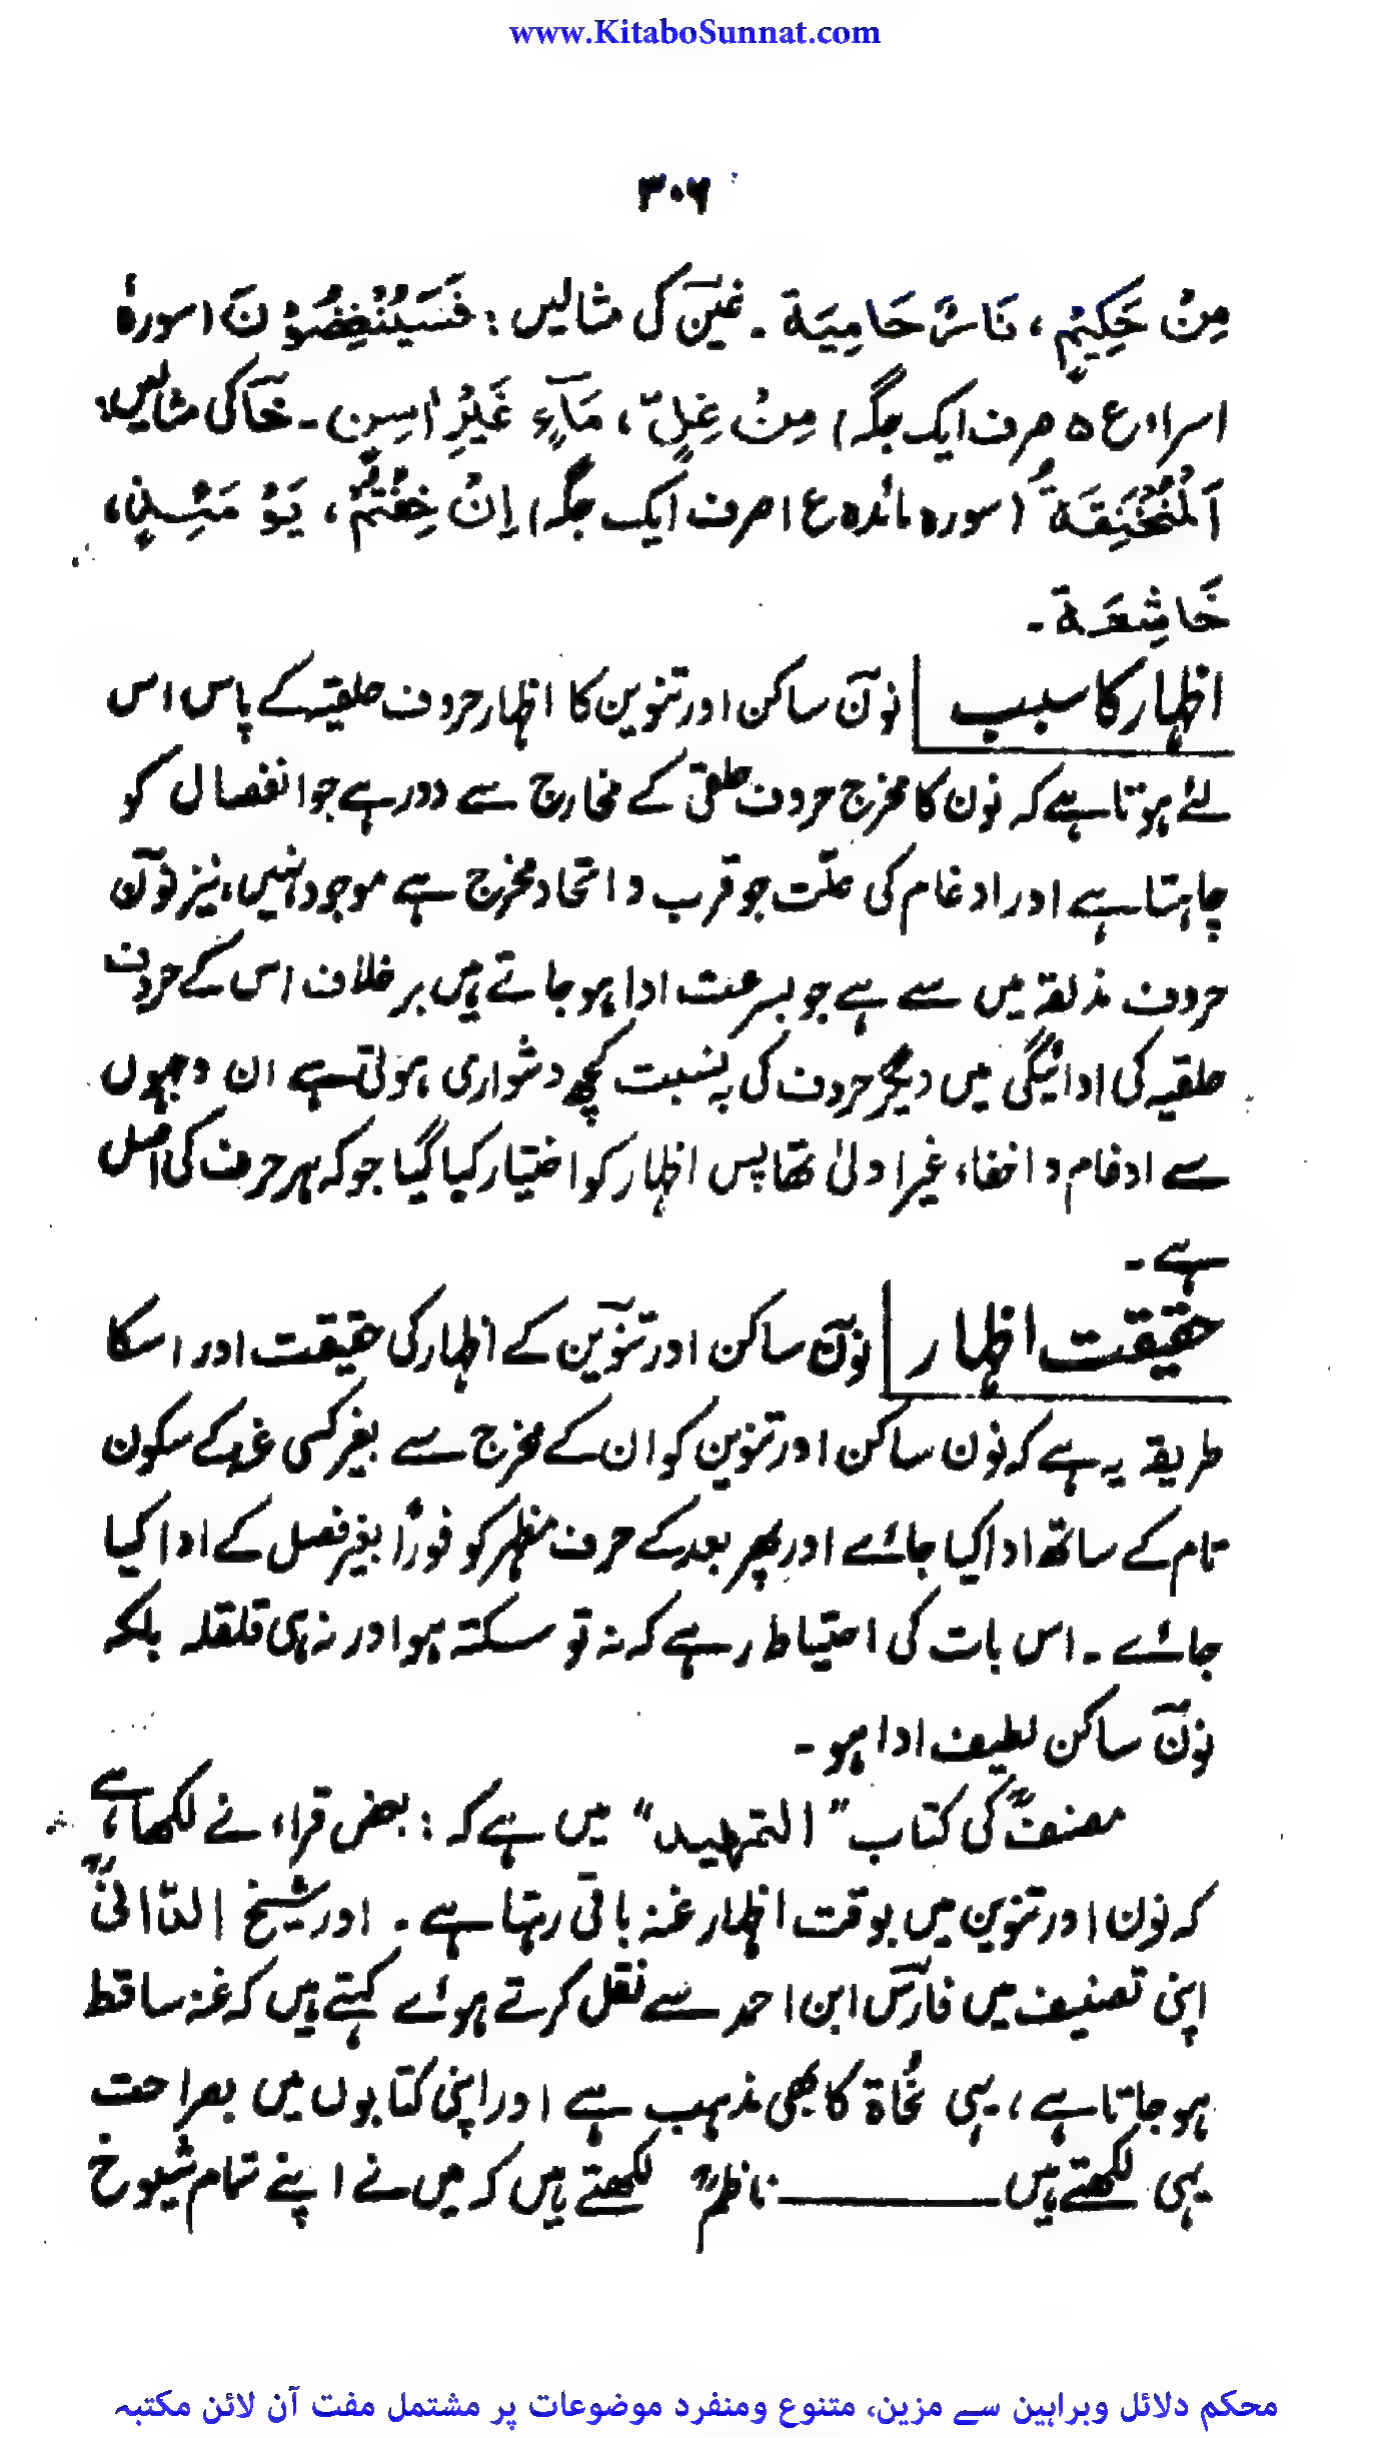 www.KitaboSunnat.com
۳۰۶
مِنْ حَكِيْمٍ ، نَارٌ حَامِيَة ۔ غینؔ کی مثالیں : فَسَيُنْغِضُوْنَ (سورۂ
اسراء ع ۵ صرف ایک جگہ) مِنْ غِلٍّ ، مَآءٍ غَيْرِ اٰسِنٍ ۔ خآ کی مثالیں:
اَلْمُنْخَنِقَةُ (سورہ مائدہ ع ۱ صرف ایک جگہ) اِنْ خِفْتُمْ ، يَوْمَئِذٍ ،
خَاشِعَة ۔
اظہار کا سبب نونؔ ساکن اور تنوین کا اظہار حروف حلقیہ کے پاس اس
لئے ہوتا ہے کہ نون کا مخرج حروف حلقی کے مخارج سے دور ہے جو انفصال کو
چاہتا ہے اور ادغام کی علّت جو قرب و اتحاد مخرج ہے موجود نہیں، نیز نونؔ
حروف مذلقہ میں سے ہے جو بسرعت ادا ہو جاتے ہیں برخلاف اس کے حروف
حلقیہ کی ادائیگی میں دیگر حروف کی بہ نسبت کچھ دشواری ہوتی ہے ان وجہوں
سے ادغام و اخفاء غیر اولیٰ تھا پس اظہار کو اختیار کیا گیا جو کہ ہر حرف کی اصل
ہے ۔
حقیقت اظہار نونؔ ساکن اور تنوینؔ کے اظہار کی حقیقت اور اسکا
طریقہ یہ ہے کہ نون ساکن اور تنوین کو ان کے مخرج سے بغیر کسی غنہ کے سکون
تام کے ساتھ ادا کیا جائے اور پھر بعد کے حرف مظہر کو فوراً بغیر فصل کے ادا کیا
جائے ۔ اس بات کی احتیاط رہے کہ نہ تو سکتہ ہو اور نہ ہی قلقلہ بلکہ
نونؔ ساکن لطیف ادا ہو ۔
مصنفؒ کی کتاب "التمہید" میں ہے کہ : بعض قراء نے لکھا ہے،
کہ نون اور تنوین میں بوقت اظہار غنہ باقی رہتا ہے ۔ اور شیخ الدّانیؒ
اپنی تصنیف میں فارسؔ ابن احمد سے نقل کرتے ہوئے کہتے ہیں کہ غنہ ساقط
ہو جاتا ہے ، یہی نُحاۃ کا بھی مذہب ہے اور اپنی کتابوں میں بصراحت
یہی لکھتے ہیں ــــــــــــ ناظمؒ لکھتے ہیں کہ میں نے اپنے تمام شیوخ
محکم دلائل وبراہین سے مزین، متنوع ومنفرد موضوعات پر مشتمل مفت آن لائن مکتبہ